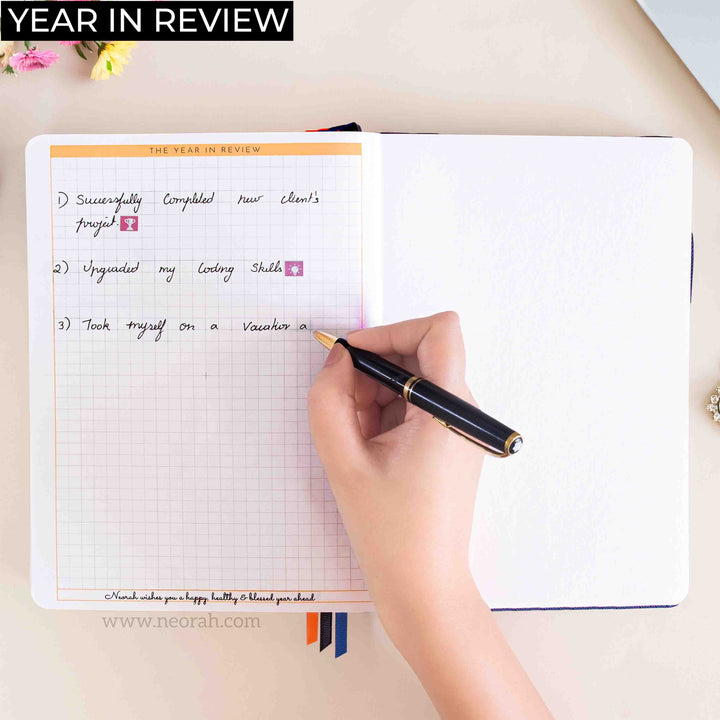 YEAR IN REVIEW
THE YEAR IN REVIEW
1) Successfully Completed new client's
project.
2) Upgraded my Coding Skills
3) Took myself on a Vacation a
Neorah wishes you a happy, healthy & blessed year ahead
www.neorah.com